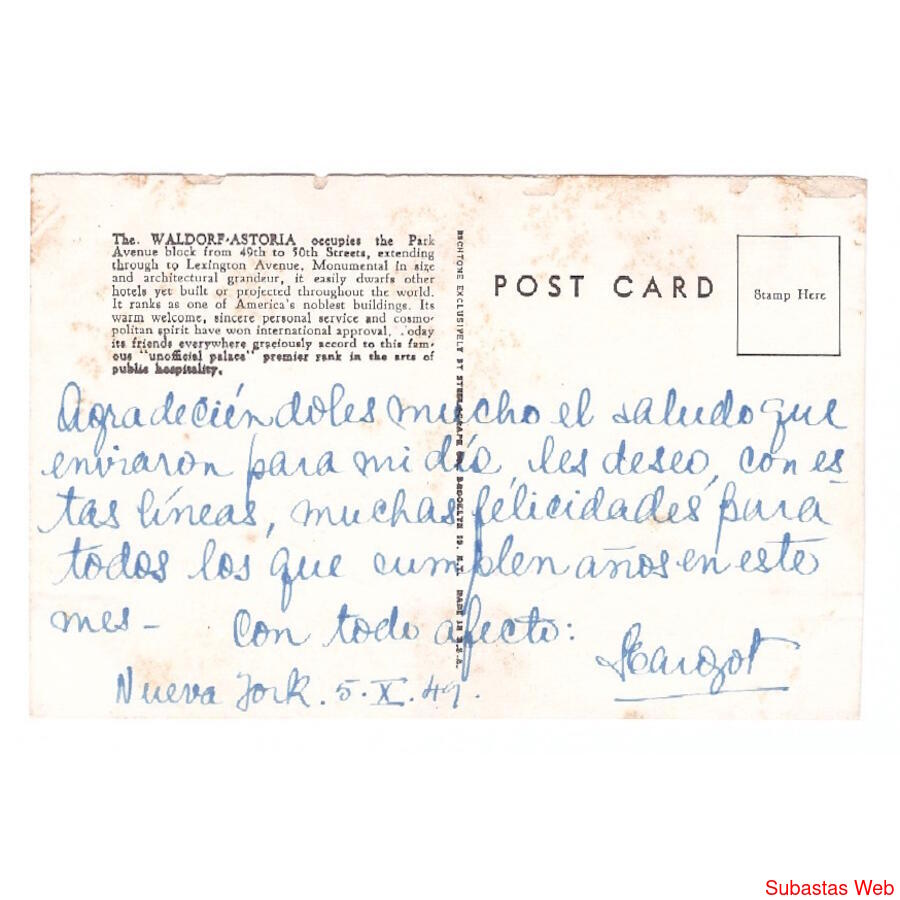 The. WALDORF-ASTORIA occupies the Park
Avenue block from 49th to 50th Streets, extending
through to Lexington Avenue. Monumental in size
and architectural grandeur, it easily dwarfs other
hotels yet built or projected throughout the world.
It ranks as one of America's noblest buildings. Its
warm welcome, sincere personal service and cosmo-
politan spirit have won international approval. .oday
its friends everywhere graciously accord to this fam-
ous "unofficial palace" premier rank in the arts of
public hospitality.
EXCLUSIVELY BY BROOKLYN MADE IN U.S.A.
POST CARD
Stamp Here
Agradeciéndoles mucho el saludo que
enviaron para mi día, les deseo, con es
tas líneas, muchas felicidades para
todos los que cumplen años en este
mes-
Con todo afecto:
Margot
Nueva York. 5.X.49.
Subastas Web